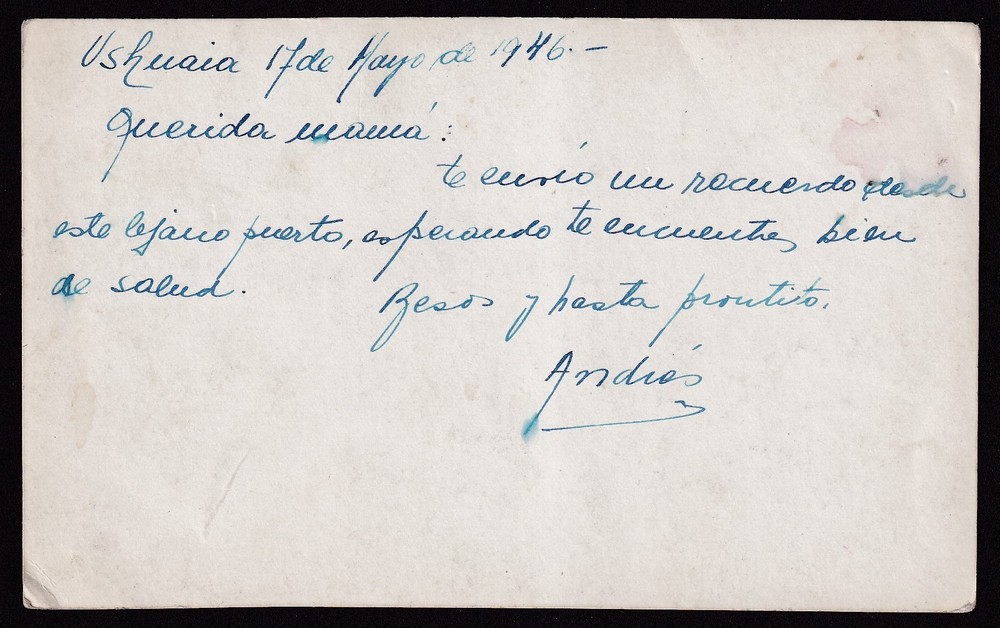 Ushuaia 17 de Mayo de 1946.-
Querida mamá:
te envio un recuerdo desde
este lejano puerto, esperando te encuentres bien
de salud.
Besos y hasta prontito.
Andrés